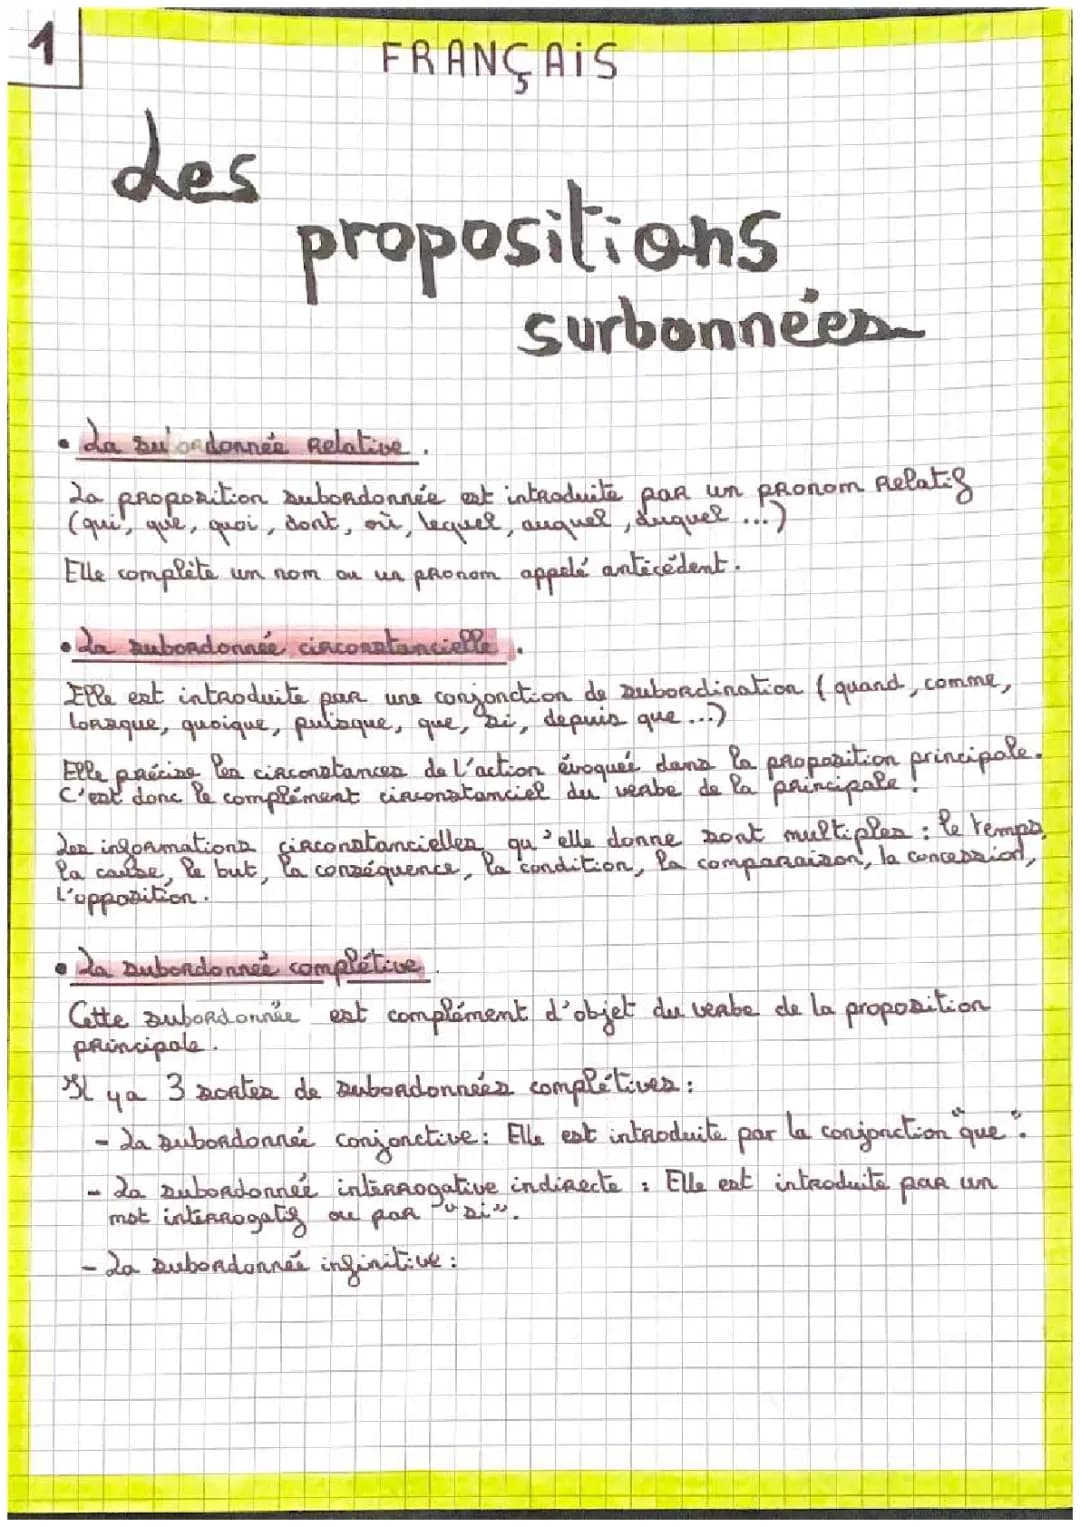 1
FRANÇAIS
Les
propositions
surbonnées
• La subordonnée Relative.
La proposition subordonnée est introduite par un pronom Relatif
(qui, que, quoi, dont, où, lequel, auquel, duquel ...)
Elle complète un nom ou un pronom appelé antécédent.
• La subordonnée circonstancielle.
Elle est introduite par une conjonction de subordination (quand, comme,
lorsque, quoique, puisque, que, si, depuis que ...)
Elle précise les circonstances de l'action évoquée dans la proposition principale.
C'est donc le complément circonstanciel du verbe de la principale.
Les informations circonstancielles qu'elle donne sont multiples : le temps,
la cause, le but, la conséquence, la condition, la comparaison, la concession,
l'opposition.
• La subordonnée complétive.
Cette subordonnée est complément d'objet du verbe de la proposition
principale.
Il y a 3 sortes de subordonnées complétives :
- La subordonnée conjonctive : Elle est introduite par la conjonction "que".
- La subordonnée interrogative indirecte : Elle est introduite par un
mot interrogatif ou par "si".
- La subordonnée infinitive :